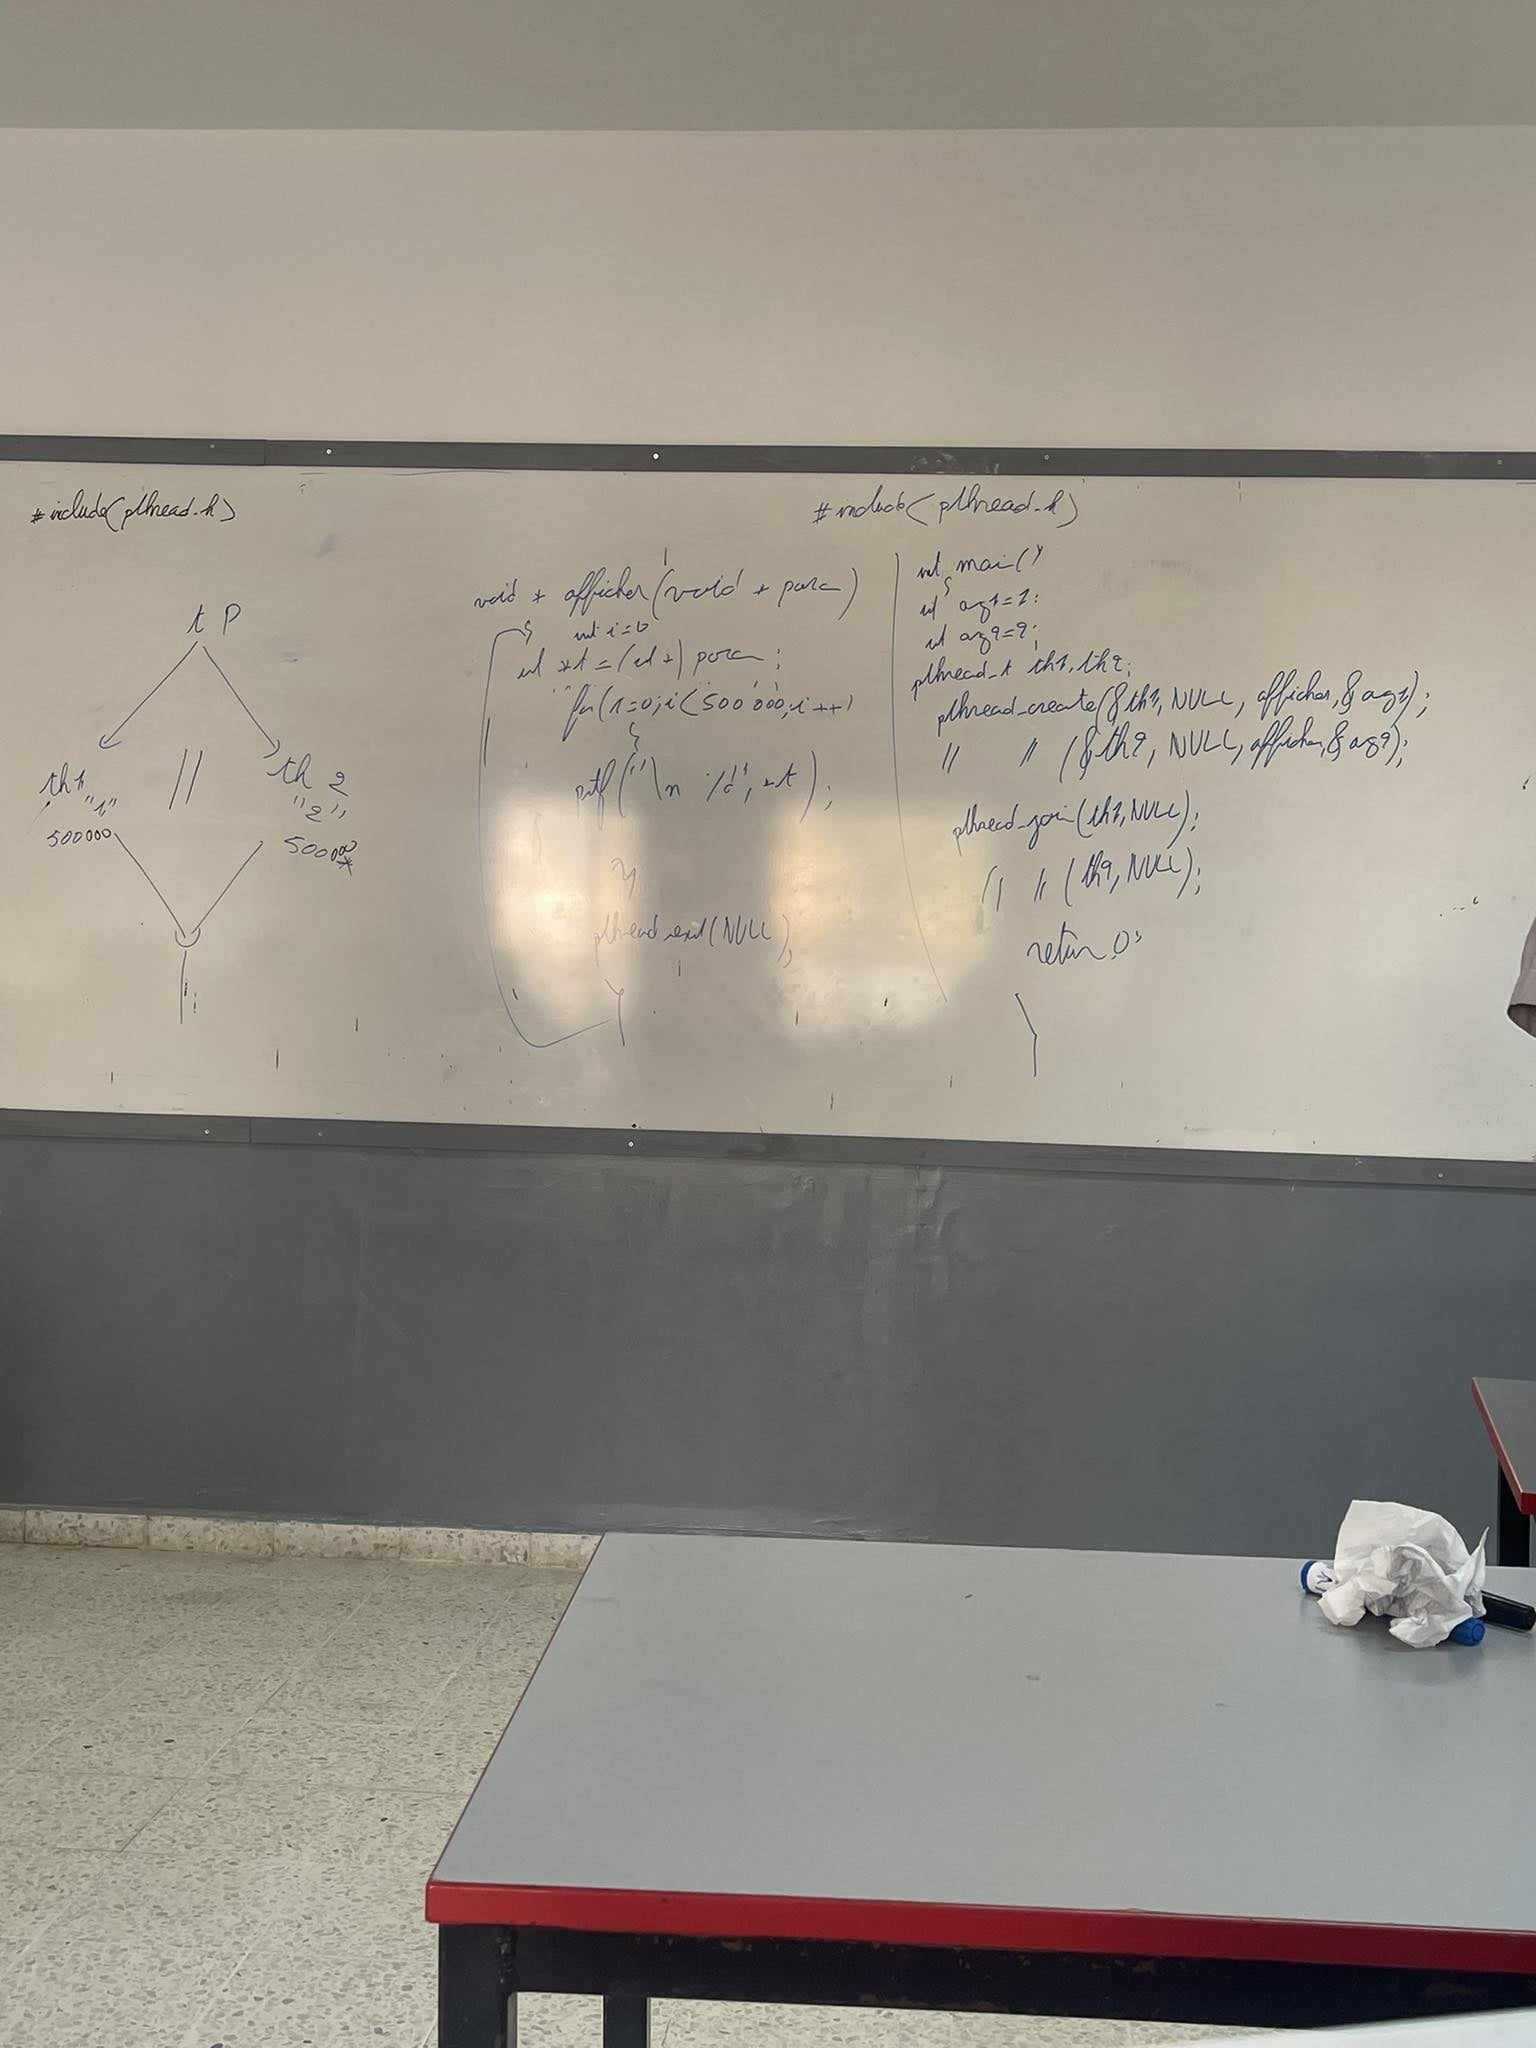 #include(pthread.h)
t P
th1 // th 2
"1" "2"
500000 500000*
void * afficher(void * para)
{ int i=0
int *t = (int *) para;
for(i=0; i<500'000; i++)
{
printf("\n %d", *t);
}
pthread_exit(NULL);
}
#include(pthread.h)
int main()
{
int arg1=1;
int arg2=2;
pthread_t th1, th2;
pthread_create(&th1, NULL, afficher, &arg1);
// // (&th2, NULL, afficher, &arg2);
pthread_join(th1, NULL);
// // (th2, NULL);
return 0;
}